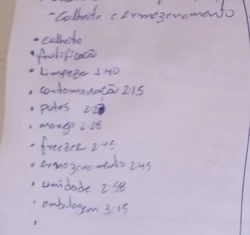 - Colheita e Armazenamento
• colheita
• frutificação
• Limpeza 1:40
• contaminação 2:15
• potes 2:23
• manejo 2:28
• freezer 2:45
• armazenamento 2:45
• umidade 2:58
• embalagem 3:15